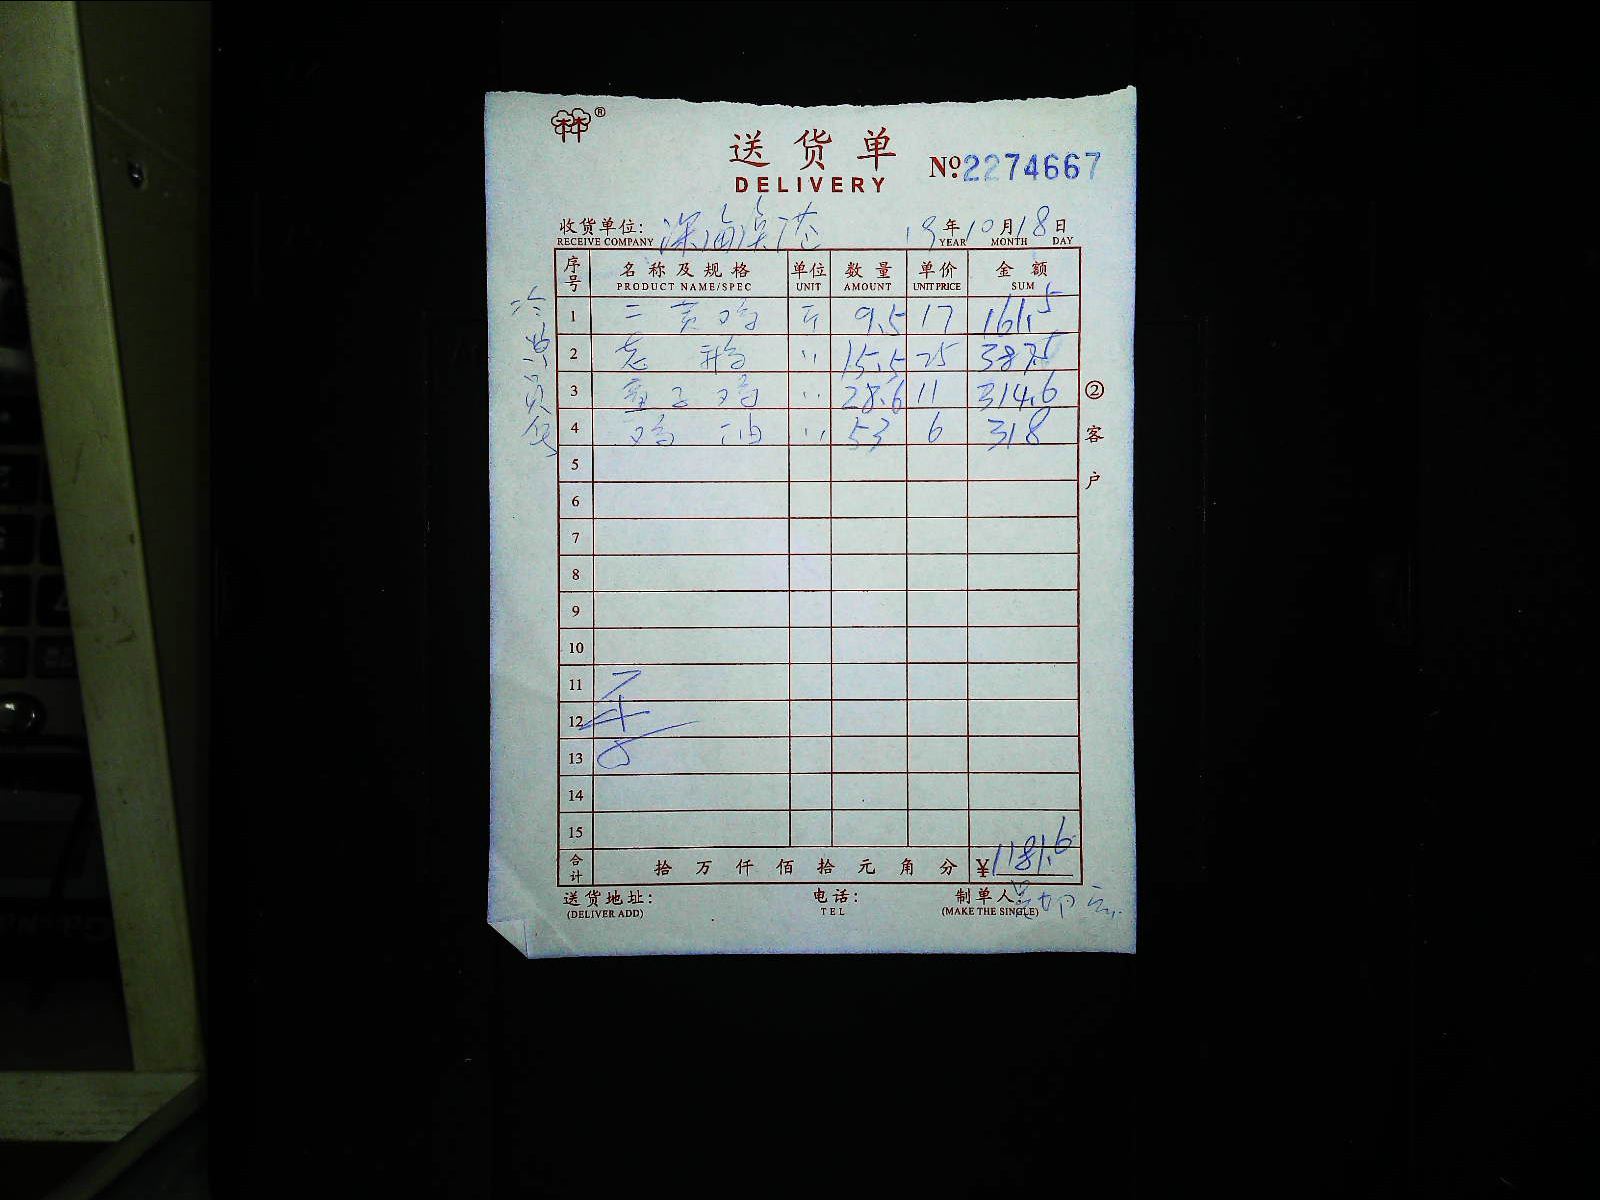 林®
送货单
DELIVERY
№2274667
收货单位: 深海渔港 19年10月18日
RECEIVE COMPANY YEAR MONTH DAY
序号 名称及规格 单位 数量 单价 金额
PRODUCT NAME/SPEC UNIT AMOUNT UNIT PRICE SUM
1 三黄鸡 斤 9.5 17 161.5
2 老鹅 〃 15.5 25 387.5
3 童子鸡 〃 28.6 11 314.6
4 鸡油 〃 53 6 318
5
6
7
8
9
10
11
12
13
14
15
合计 拾万仟佰拾元角分 ¥1181.6
送货地址: 电话: 制单人:
(DELIVER ADD) TEL (MAKE THE SINGLE)
②客户